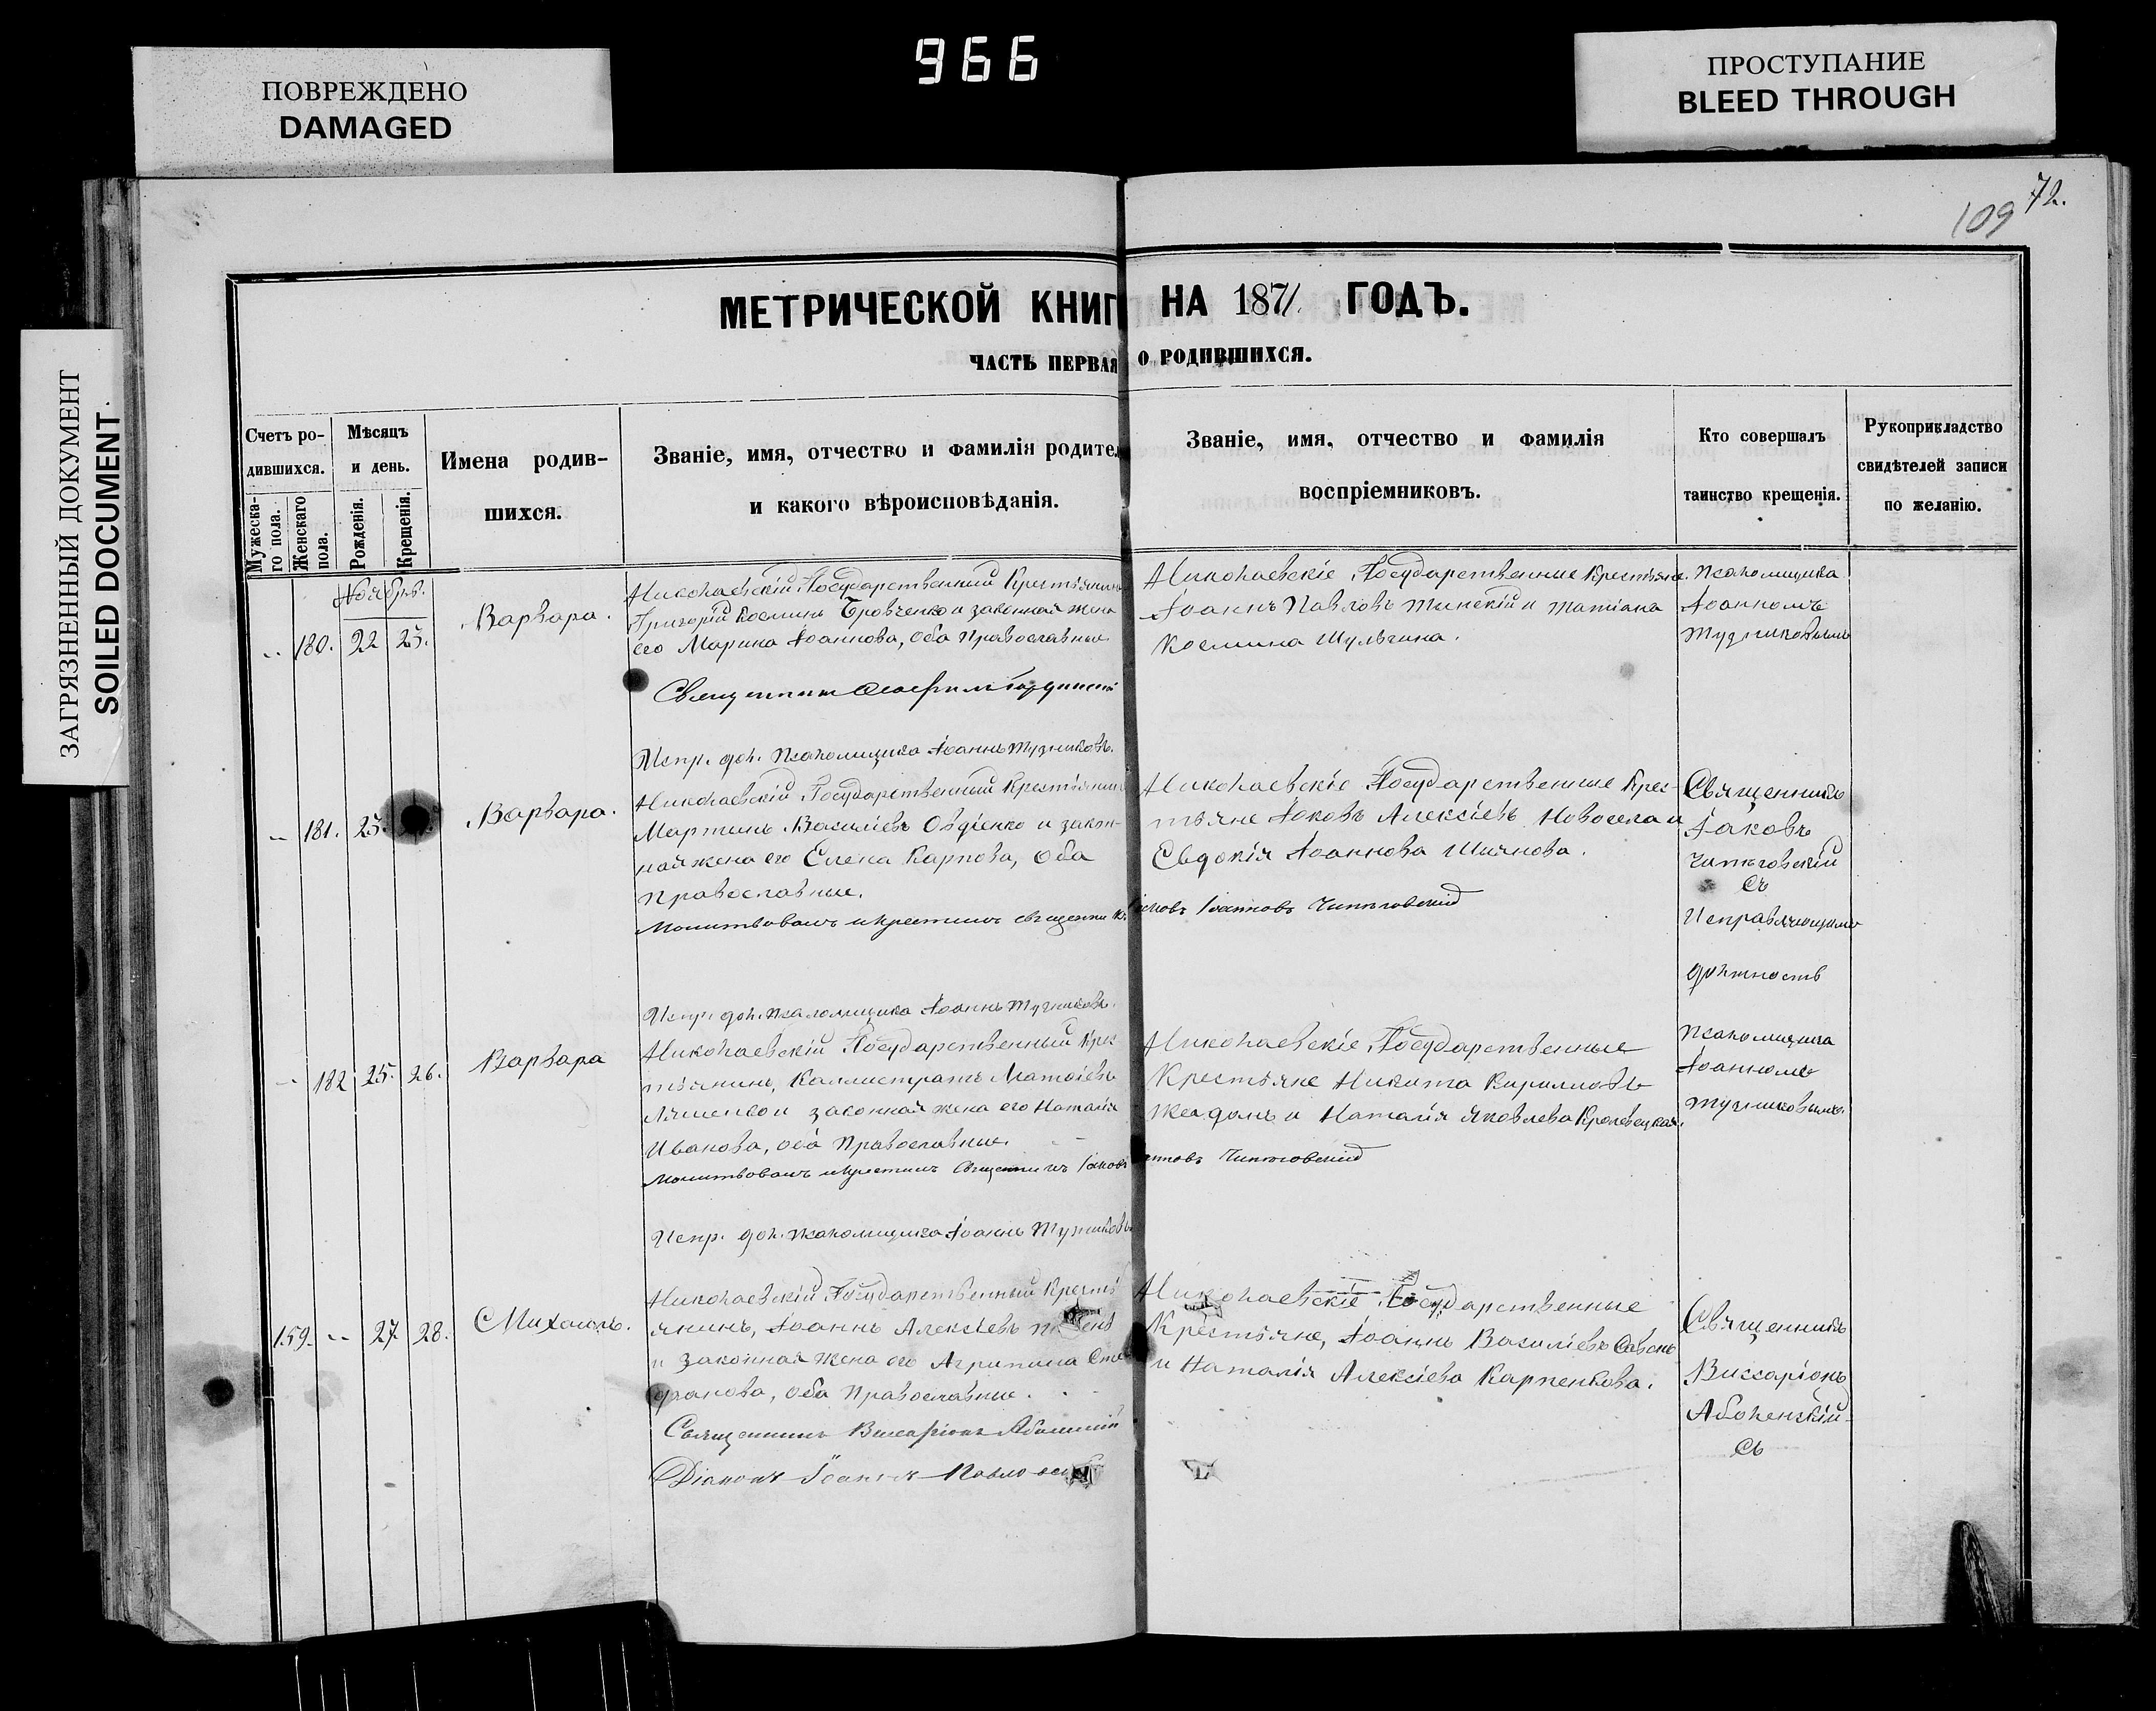 966
ПОВРЕЖДЕНО
DAMAGED
ПРОСТУПАНИЕ
BLEED THROUGH
ЗАГРЯЗНЕННЫЙ ДОКУМЕНТ
SOILED DOCUMENT
109 72.
МЕТРИЧЕСКОЙ КНИГ НА 1871 ГОДЪ.
ЧАСТЬ ПЕРВАЯ О РОДИВШИХСЯ.
Счетъ ро-
дившихся.
Мужеска-
го пола.
Женскаго
пола.
Мѣсяцъ
и день.
Рожденія.
Крещенія.
Имена родив-
шихся.
Званіе, имя, отчество и фамилія родител
и какого вѣроисповѣданія.
Званіе, имя, отчество и фамилія
воспріемниковъ.
Кто совершалъ
таинство крещенія.
Рукоприкладство
свидѣтелей записи
по желанію.
Ноября.
180. 22 23. Варвара.
Николаевскій Государственный Крестьянинъ
Григорій Косминъ Бровченко и законная жена
его Марина Іоаннова, оба Православные
Священникъ
Николаевскіе Государственные Крестьяне
Іоаннъ Павловъ и Татіана
Космина Шульгина.
Псаломщика
Іоанномъ
Тузниковымъ
Испр. дол. Псаломщика Іоаннъ Тузниковъ.
181. 23. Варвара.
Николаевскій Государственный Крестьянинъ
Мартинъ Василіевъ Овдіенко и закон-
ная жена его Елена Карпова, оба
Православные.
Молитвовалъ и крестилъ священникъ Іаковъ Іоанновъ Чипиговскій
Николаевскіе Государственные Крес-
тьяне Іаковъ Алексіевъ Новосела и
Евдокія Іоаннова Шиянова.
Священникъ
Іаковъ
Чипиговскій
съ
Исправляющимъ
должность
Псаломщика
Іоанномъ
Тузниковымъ.
Испр. дол. Псаломщика Іоаннъ Тузниковъ.
182 25. 26. Варвара
Николаевскій Государственный Крес
тьянинъ, Каллистратъ Матвіевъ
Ляшенко и законная жена его Наталія
Иванова, оба Православные.
Молитвовалъ и крестилъ Священникъ Іаковъ Чипиговскій
Николаевскіе Государственные
Крестьяне Никита Кирилловъ
Жадонъ и Наталія Яковлева Кролевецкая.
Испр. дол. Псаломщика Іоаннъ Тузниковъ
159. 27 28. Михаилъ.
Николаевскій Государственный Кресть
янинъ, Іоаннъ Алексіевъ
и законная жена его Агрипина Сте
фанова, оба Православные.
Священникъ Виссаріонъ
Діаконъ Іоаннъ
Николаевскіе Государственные
Крестьяне, Іоаннъ Василіевъ Савонъ
и Наталія Алексіева Карпенкова.
Священникъ
Виссаріонъ
съ